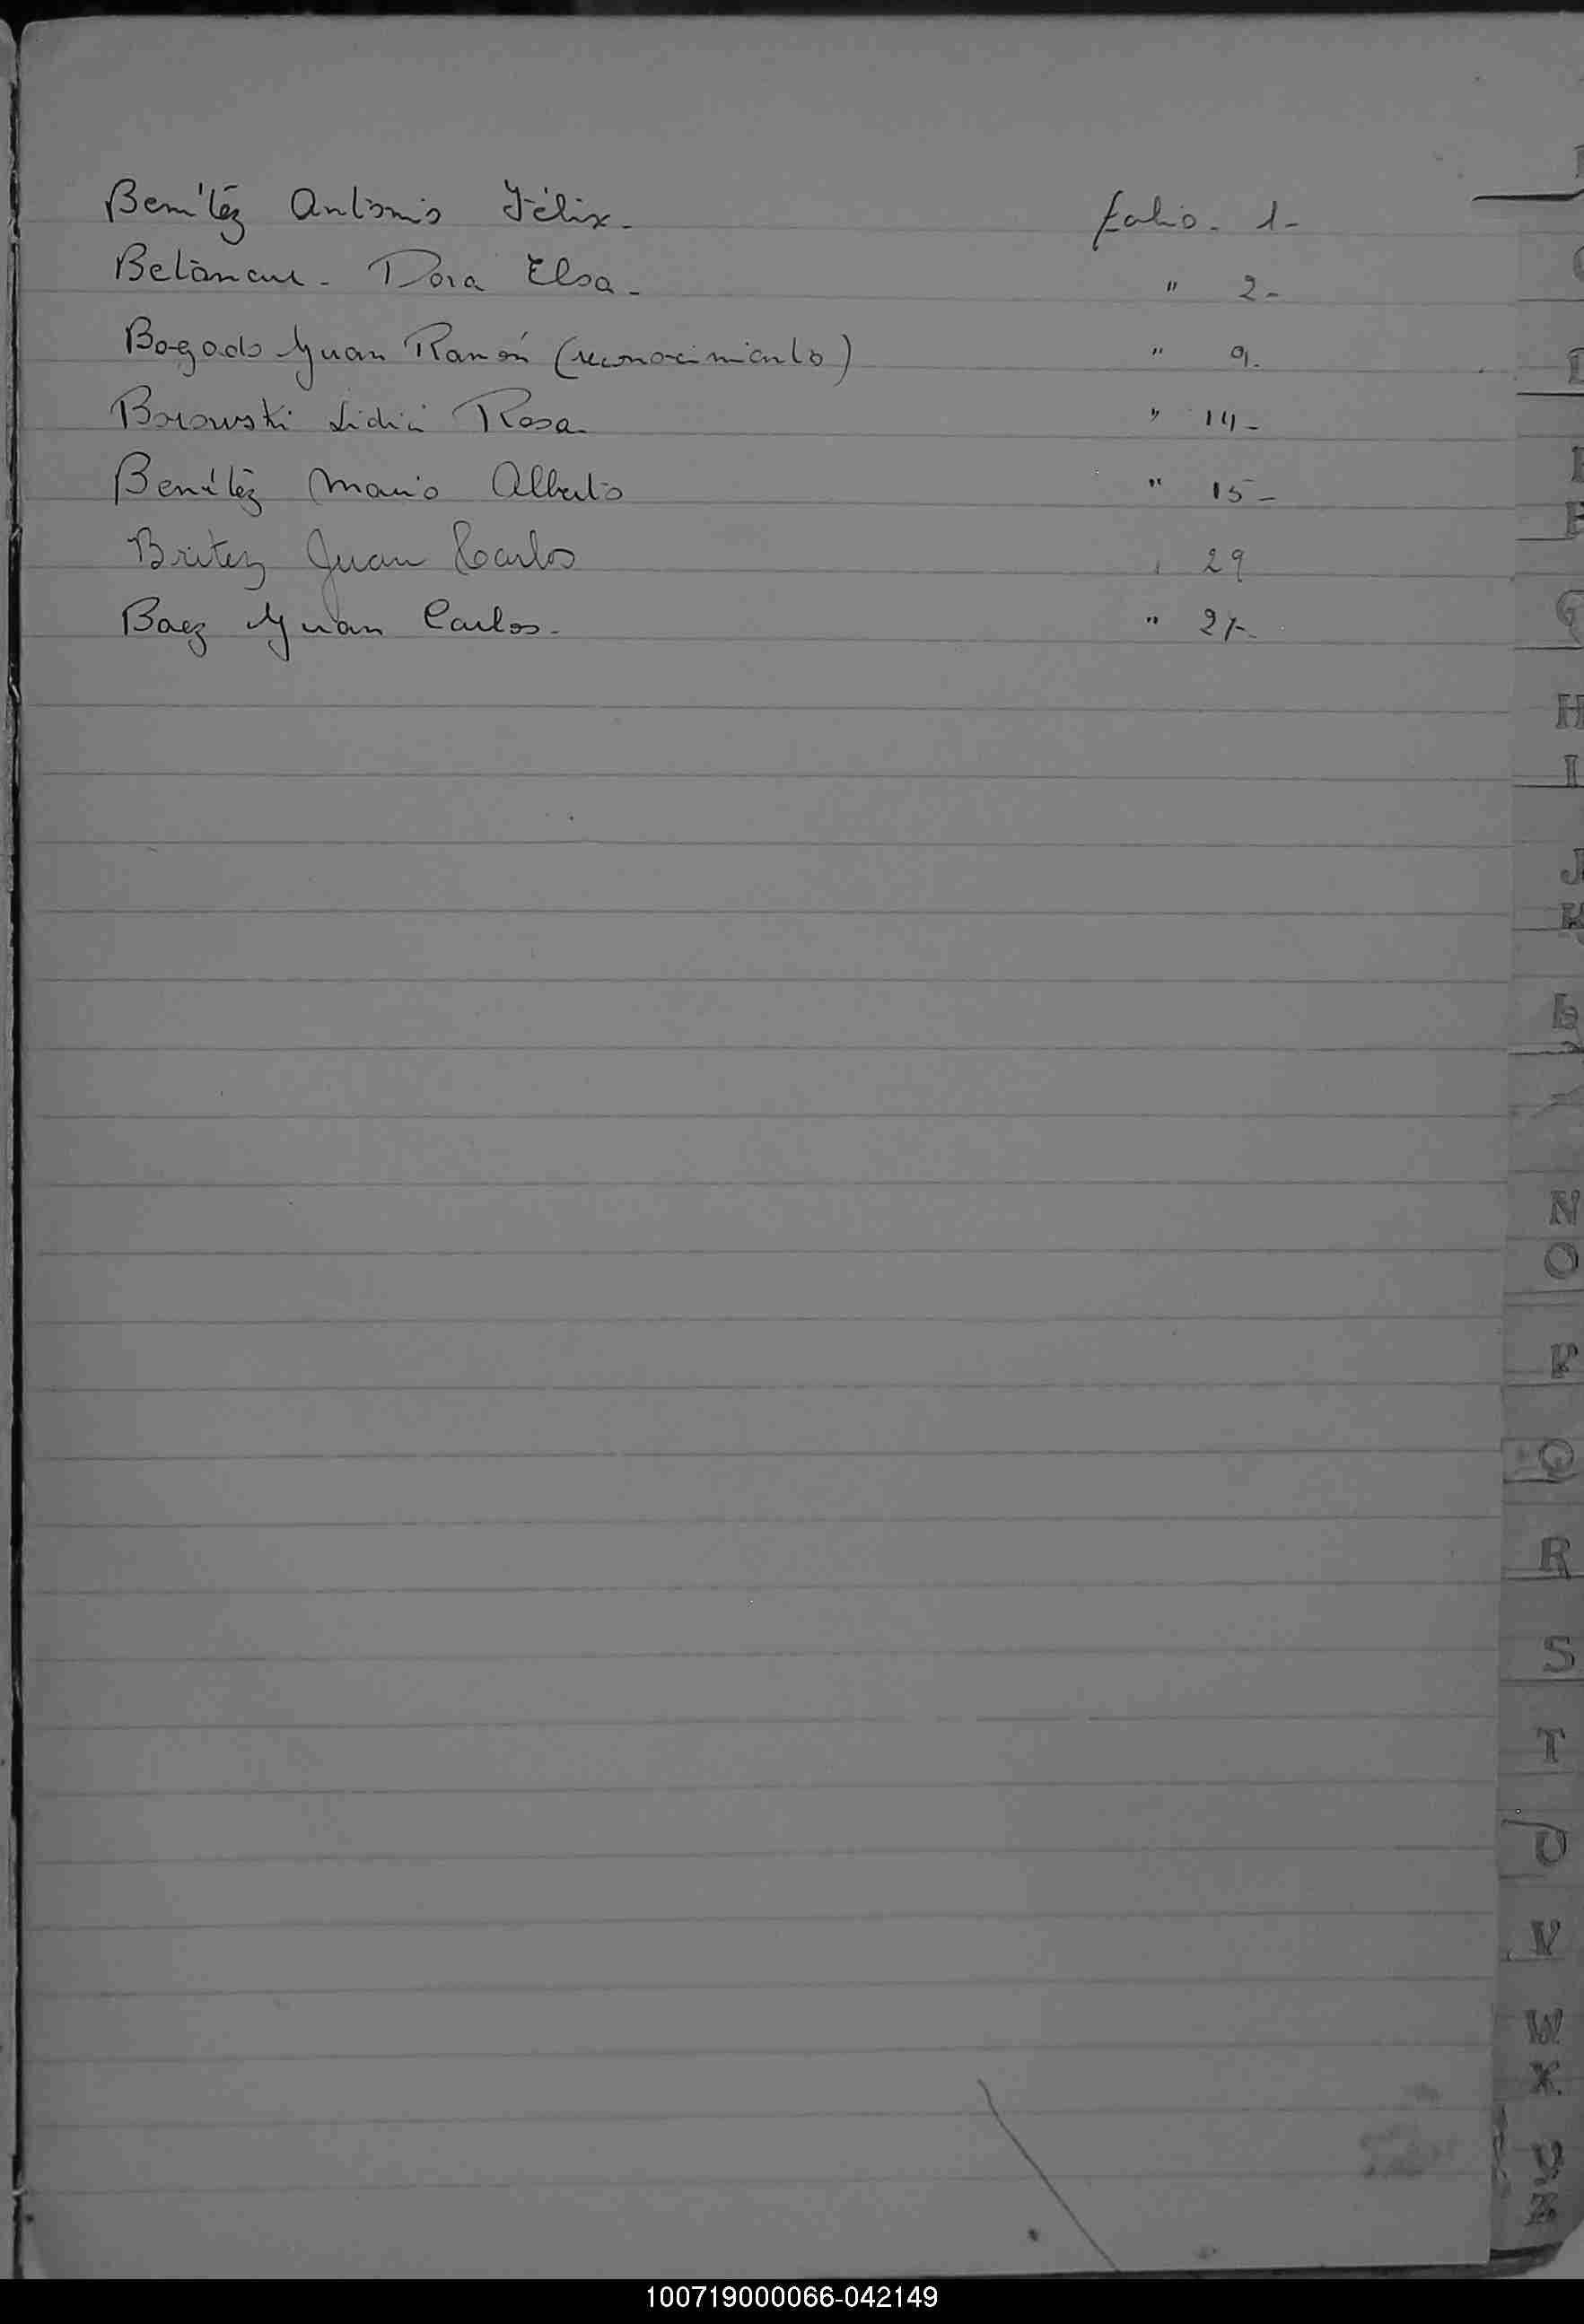 Benítez Antonio Félix. folio. 1-
Betancur. Dora Elsa. " 2-
Bogado Juan Ramón (reconocimiento) " 9.
Borowski Lidia Rosa. " 14-
Benítez Mario Alberto " 15-
Britez Juan Carlos 29
Baez Juan Carlos. "
H
I
J
K
L
N
O
P
Q
R
S
T
V
W
X
Z
100719000066-042149